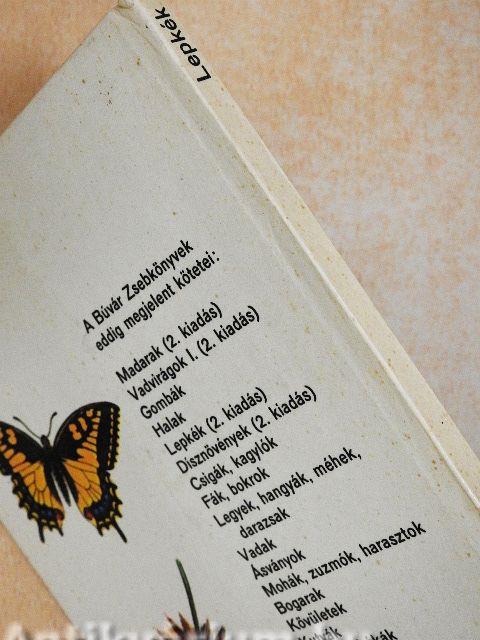 Lepkék
A Búvár Zsebkönyvek
eddig megjelent kötetei:
Madarak (2. kiadás)
Vadvirágok I. (2. kiadás)
Gombák
Halak
Lepkék (2. kiadás)
Dísznövények (2. kiadás)
Csigák, kagylók
Fák, bokrok
Legyek, hangyák, méhek,
darazsak
Vadak
Ásványok
Mohák, zuzmók, harasztok
Bogarak
Kövületek